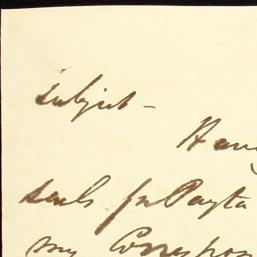 subject –
Hav
sails for Payta
my Correspon